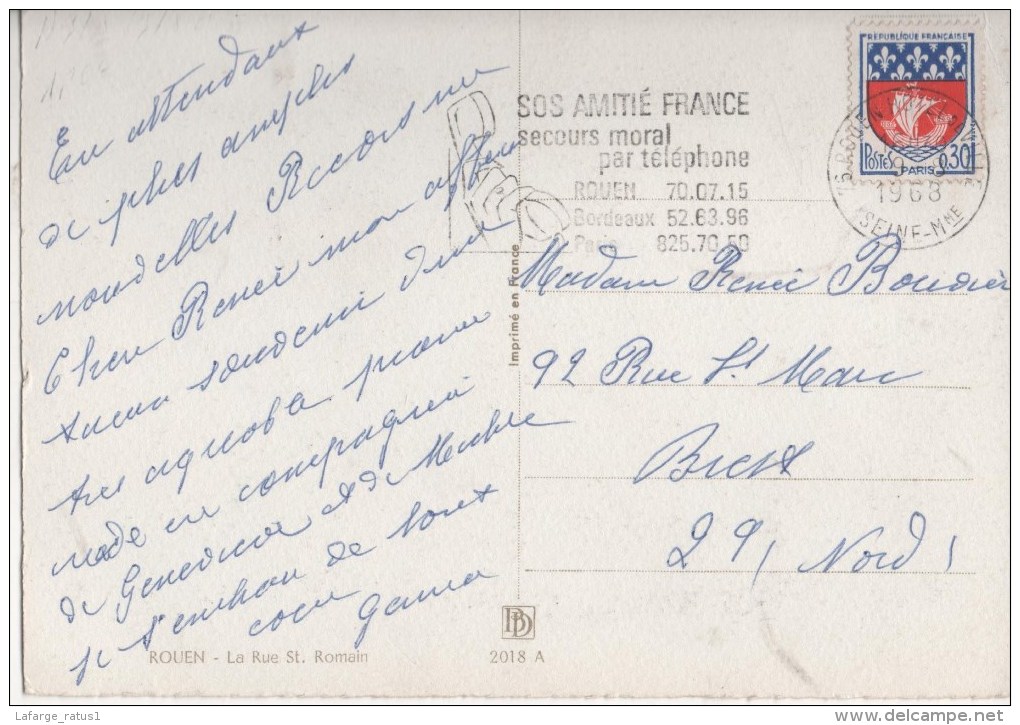 En attendant
de plus amples
nouvelles Recois ma
Cher Renei mon affec
aucun souvenir d'une
tres agreable prome
nade en compagnie
de Genevieve et de Michle
je t'embra de tout
coeur
SOS AMITIÉ FRANCE
secours moral
par téléphone
ROUEN 70.07.15
Bordeaux 52.63.96
Paris 825.70.50
RÉPUBLIQUE FRANÇAISE
POSTES PARIS 0,30
1968
SEINE-MME
Imprimé en France
Madame Renei Boudier
92 Rue St Marc
Brest
29, Nord,
ROUEN - La Rue St. Romain
PD
2018 A
Lafarge_ratus1
www.delcampe.net